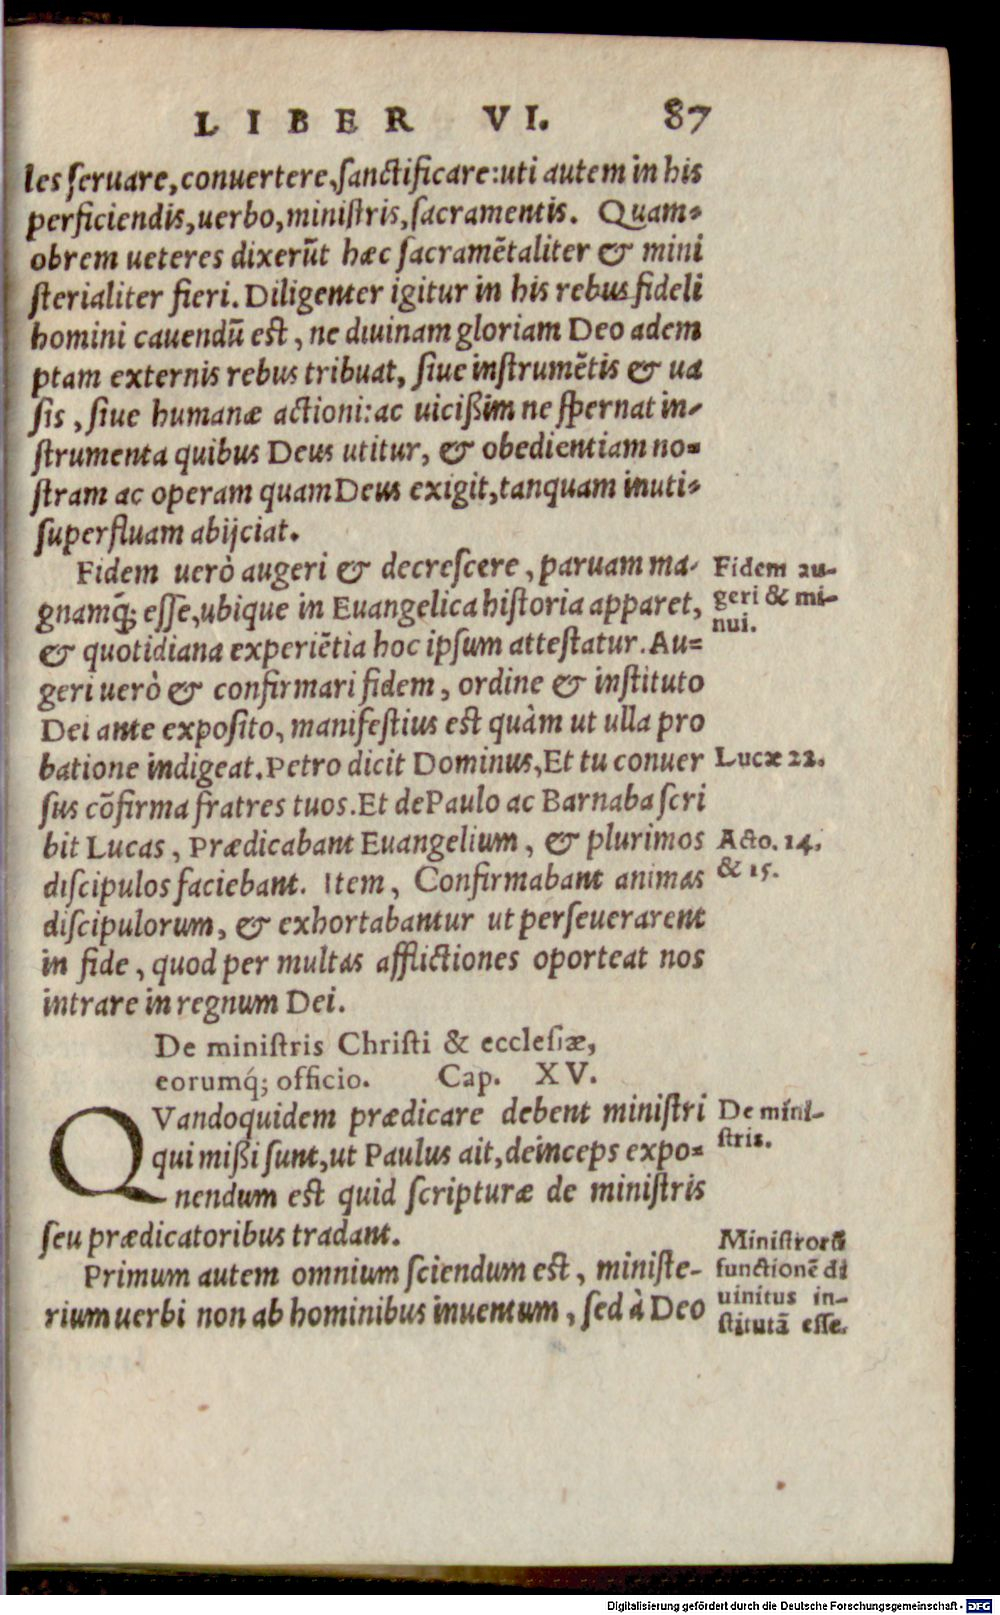 LIBER VI. 87
les ſeruare, conuertere, ſanctificare: uti autem in his
perficiendis, uerbo, miniſtris, ſacramentis. Quam-
obrem ueteres dixerūt hæc ſacramētaliter & mini
ſterialiter fieri. Diligenter igitur in his rebus fideli
homini cauendū eſt, ne diuinam gloriam Deo adem
ptam externis rebus tribuat, ſiue inſtrumētis & ua
ſis, ſiue humanæ actioni: ac uicißim ne ſpernat in-
ſtrumenta quibus Deus utitur, & obedientiam no-
ſtram ac operam quam Deus exigit, tanquam inuti-
ſuperfluam abijciat.
Fidem uerò augeri & decreſcere, paruam ma-
gnamq́; eſſe, ubique in Euangelica hiſtoria apparet,
& quotidiana experiētia hoc ipſum atteſtatur. Au-
geri uerò & confirmari fidem, ordine & inſtituto
Dei ante expoſito, manifeſtius eſt quàm ut ulla pro
batione indigeat. Petro dicit Dominus, Et tu conuer
ſus cōfirma fratres tuos. Et de Paulo ac Barnaba ſcri
bit Lucas, Prædicabant Euangelium, & plurimos
diſcipulos faciebant. Item, Confirmabant animas
diſcipulorum, & exhortabantur ut perſeuerarent
in fide, quod per multas afflictiones oporteat nos
intrare in regnum Dei.
Fidem au-
geri & mi-
nui.
Lucæ 22.
Acto. 14.
& 15.
De miniſtris Chriſti & eccleſiæ,
eorumq́; officio. Cap. XV.
QVandoquidem prædicare debent miniſtri
qui mißi ſunt, ut Paulus ait, deinceps expo-
nendum eſt quid ſcripturæ de miniſtris
ſeu prædicatoribus tradant.
Primum autem omnium ſciendum eſt, miniſte-
rium uerbi non ab hominibus inuentum, ſed à Deo
De mini-
ſtris.
Miniſtrorū
functionē di
uinitus in-
ſtitutā eſſe.
Digitalisierung gefördert durch die Deutsche Forschungsgemeinschaft - DFG